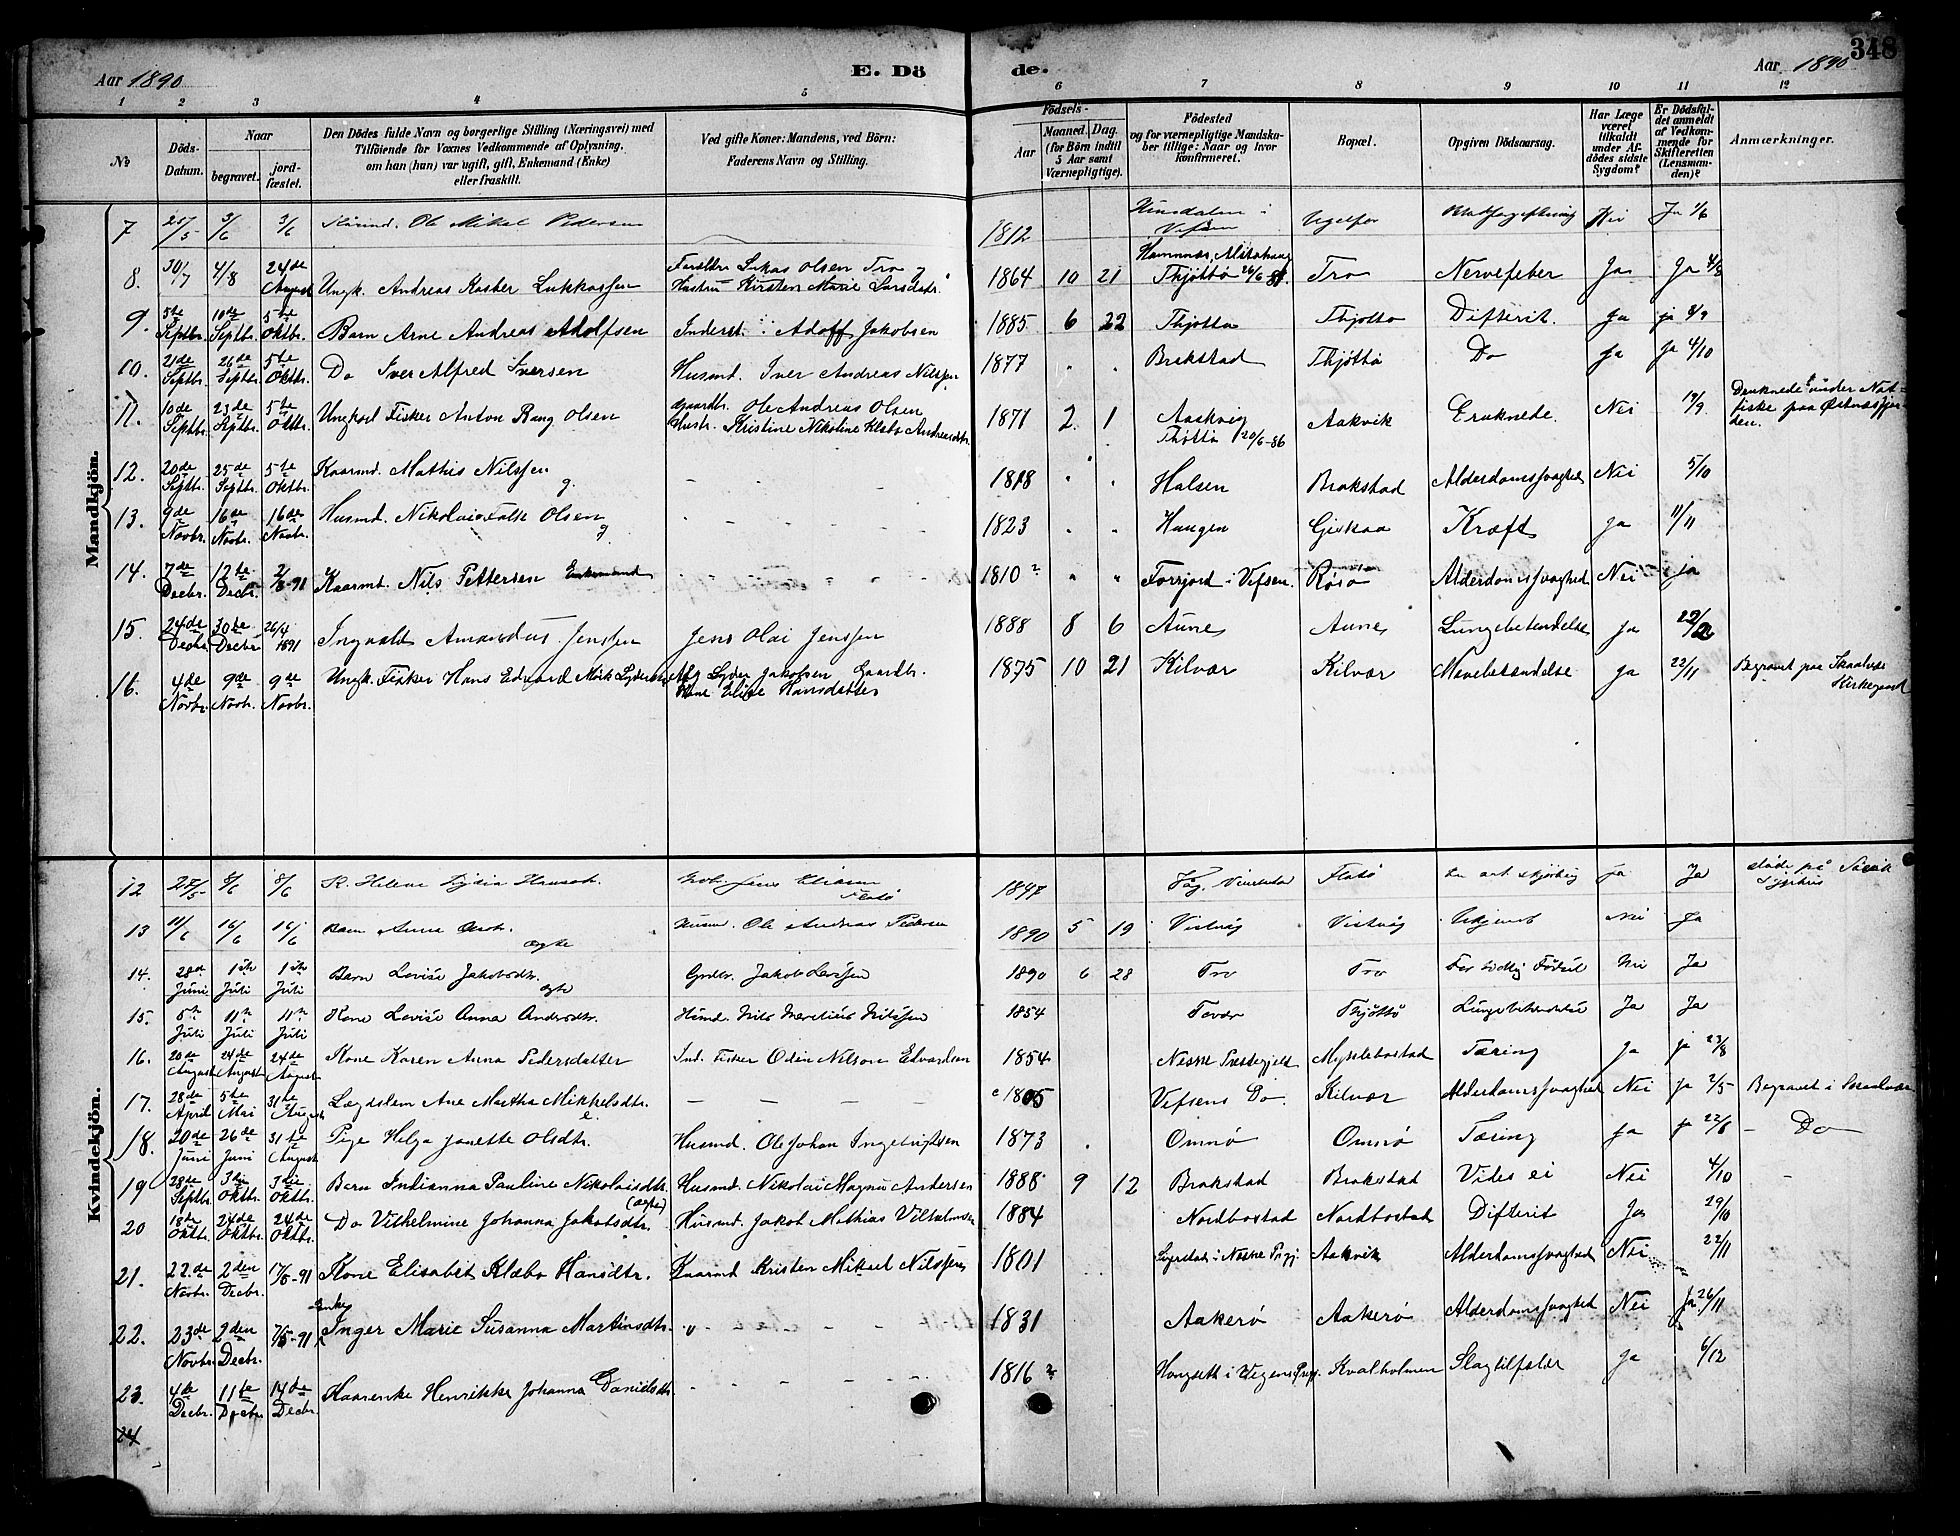 348
Aar 1890
E. Dö
de.
Aar 1890
1 2 3 4 5 6 7 8 9 10 11 12
No
Döds-Datum.
Naar
begravet.
jord-fæstet.
Den Dödes fulde Navn og borgerlige Stilling (Næringsvei) med
Tilföiende for Voxnes Vedkommende af Oplysning,
om han (hun) var ugift, gift, Enkemand (Enke)
eller fraskilt.
Ved gifte Koner: Mandens, ved Börn:
Faderens Navn og Stilling.
Födsels-
Aar
Maaned. Dag.
(for Börn indtil
5 Aar samt
Værnepligtige).
Födested
og for værnepligtige Mandska-
ber tillige: Naar og hvor
konfirmeret.
Bopæl.
Opgiven Dödsaarsag.
Har Læge
været
tilkaldt
under Af-
dödes sidste
Sygdom?
Er Dödsfal-
det anmeldt
af Vedkom-
mende for
Skifteretten
(Lensman-
den)?
Anmærkninger.
Mandkjön.
7 25/5 3/6 3/6 Ole Mikal Pedersen 1812 Vefsen Nei Ja 1/6
8. 30/7 4/8 24de August Ungk. Andreas Kaster Lukkassen Forældre Lukas Olsen Tro Hustru Kirsten Marie Larsdatr. 1864 10 21 Thjöttö 26/6 81. Tro Nervefeber Ja Ja 4/8
9. 5te Septbr. 10de Septbr. 5te Oktbr. Barn Arne Andreas Adolfsen Inderst. Adolf Jakobsen 1885 6 22 Thjötta Thjotto Difterit. Ja ja 8/9
10. 21de Septbr. 26de Septbr. 5te Oktbr. Do Iver Alfred Iversen Husmd. Iver Andreas Nilssen 1877 Brakstad Thjöttö Do Ja Ja 4/10
11. 10de Septbr. 23de Septbr. 5te Oktbr. Ungkarl Fisker Anton Bang Olsen Gaardbr. Ole Andreas Olsen Hustr. Kristine Nikoline Klabo Andreasdtr. 1871 2. 1 Aakvig Thöttö 20/6-86 Aakvik Druknede. Nei 19/9 Druknede under Not-
fiske paa
den.
12. 20de Septbr. 25de Septbr. 5te Oktbr. Kaarmd. Mathis Nilssen g. 1818 Halsen Brakstad Alderdomssvaghed Nei 5/10
13. 9de Novbr. 16de Novbr. 16de Novbr. Husmd. Nikolai Falk Olsen g 1823 Haugen Geskaa Kræft Ja 11/11
14. 7de Decbr. 12te Decbr. 2/8-91 Kaarmd. Nils Pettersen Enkemand 1810 ? Forrjord i Vefsen. Rösö Alderdomssvaghed Nei ja
15. 24de Decbr. 30te Decbr 26/4 1891 Ingvald Amandus Jenssen Jens Olai Jenssen 1888 8 6 Aunes Aunes Lungebetændelse Ja 22/2
16. 4de Novbr. 9de Novbr. 9de Novbr. Ungk. Fisker Hans Edvard Mörk Lyder Jakobsen Gaardbr. Elise Hansdatter 1875 10 21 Kilvær Kilvær Mavebetændelse Ja 22/11 Begravet paa Skaalvær
Kirkegaard
Kvindekjön.
12 27/5 8/6 8/6 K. Helene Lydia Hansdtr. Jens Eliasen Flatö 1847 Flatö Ja Ja döde på
Sygehus
13 11/6 16/6 16/6 Barn Anna Olsdtr. ægte Husmd. Ole Andreas Pedersen 1890 5 19 Vistvåg Vistvåg Ukjendt Nei Ja
14. 28de Juni 1ste Juli 1ste Juli Barn Lovise Jakobsdtr. ægte Grdbr. Jakob Larssen 1890 6 28 Tro Tro For tidlig Födsel Nei Ja
15. 5te Juli 11te Juli 11te Juli Kone Lovise Anna Andersdtr. Husmd. Nils Martinus Nilssen 1854 Tovær Thjöttö Lungebetændelse Ja Ja
16. 20de August 24de August 24de August Kone Karen Anna Pedersdatter Ind. Fisker Odin Nilson Edvardsen 1854 Nesne Prestegjeld Mysslebostad Tæring Ja ja 23/8
17. 28de April 5te Mai 31te August Lægdslem Ane Martha Mikkelsdtr. e. — — — c 1805 Vefsens Do. Kilvær Alderdomssvaghed Nei ja 2/5 Begravet i Skaalvær
18. 20de Juni 26de Juni 31te August Pige Helga Janette Olsdtr. Husmd. Ole Johan Ingebrigtsen 1873 Omnö Omnö Tæring Ja ja 22/6 — Do —
19 28de Septbr 3die Oktbr. 3die Oktbr. Barn Indianna Pauline Nikolaisdtr. (ægte) Husmd. Nikolai Magnus Andersen 1888 9 12 Brakstad Brakstad Vides ei Nei 4/10 -
20 18de Oktbr. 24de Oktbr. 24de Oktbr. Do Vilhelmine Johanna Jakobsdtr. Husmd. Jakob Mathias Vilhelmsen 1884 Nordbostad Nordbostad Difterit Ja 29/10
21. 22de Novbr. 2den Decbr. 17/5-91 Kone Elisabet Klæbo Hansdtr. Kaarmd Kristen Mikael Nilssen 1801 i Nesne Prgj Aakvik Alderdomssvaghed Nei 22/11
22. 23de Novbr. 2den Decbr. 7/5-91 Enke Inger Marie Susanna Martinsdtr. 1831 Aakerö Aakerö Alderdomssvaghed Nei Ja 26/11
23. 4de Decbr. 11te Decbr. 14de Decbr. Kaarenke Henrikke Johanna Danielsdtr. 1816 ? Hongseth i Vegens Prgj. Kvalholmen Slagtilfælde Ja 6/12
24